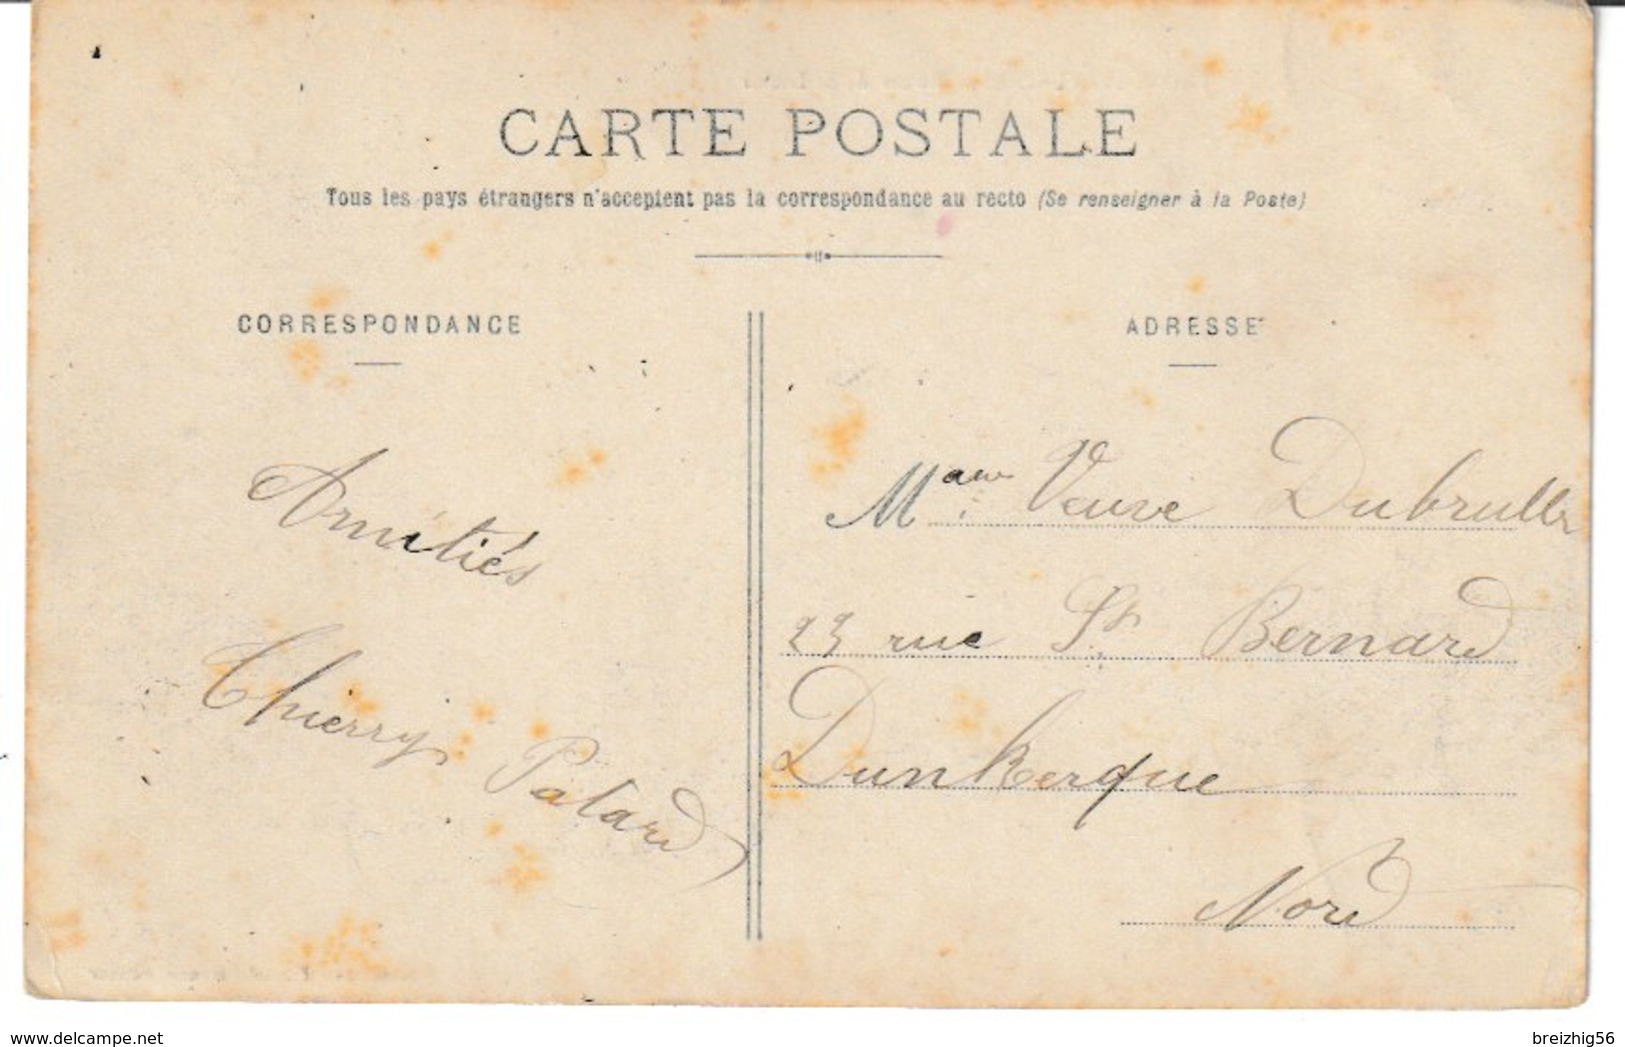 CARTE POSTALE
Tous les pays étrangers n'acceptent pas la correspondance au recto (Se renseigner à la Poste)
CORRESPONDANCE
ADRESSE
Amitiés
Thierry Patard
Mame Veuve Dubrulle
23 rue St Bernard
Dunkerque
Nord
www.delcampe.net
breizhig56